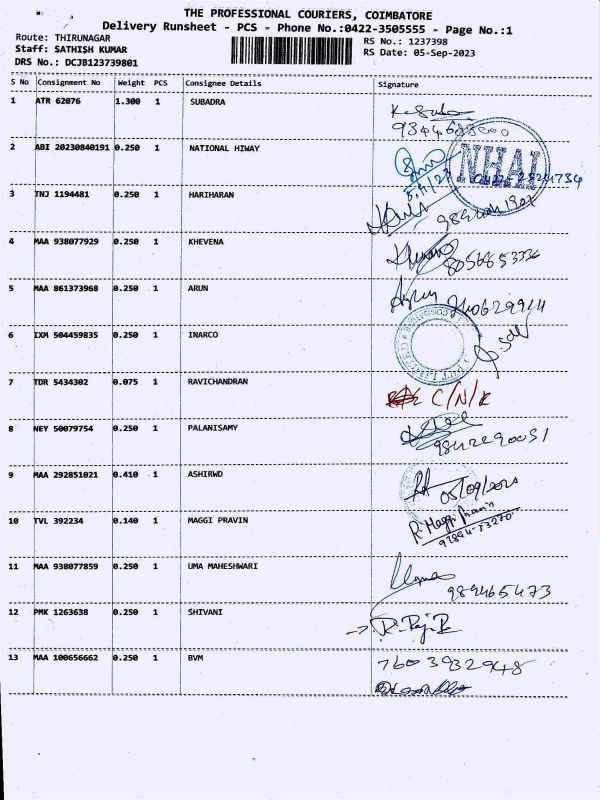 THE PROFESSIONAL COURIERS, COIMBATORE
Delivery Runsheet - PCS - Phone No.:0422-3505555 - Page No.:1
Route: THIRUNAGAR
RS No.: 1237398
Staff: SATHISH KUMAR
RS Date: 05-Sep-2023
DRS No.: DCJB123739801
S No Consignment No Weight PCS Consignee Details Signature
1 ATR 62076 1.300 1 SUBADRA
2 ABI 20230840191 0.250 1 NATIONAL HIWAY
NHAI
3 TNJ 1194481 0.250 1 HARIHARAN
4 MAA 938077929 0.250 1 KHEVENA
8056853336
5 MAA 861373968 0.250 1 ARUN
6 IXM 504459835 0.250 1 INARCO
7 TDR 5434302 0.075 1 RAVICHANDRAN
C/N/R
8 NEY 50079754 0.250 1 PALANISAMY
9842290051
9 MAA 292851021 0.410 1 ASHIRWD
10 TVL 392234 0.140 1 MAGGI PRAVIN
R. Maggi Pravin
92894-53270
11 MAA 938077859 0.250 1 UMA MAHESHWARI
Uma
989465473
12 PMK 1263638 0.250 1 SHIVANI
13 MAA 100656662 0.250 1 BVM
7603932948